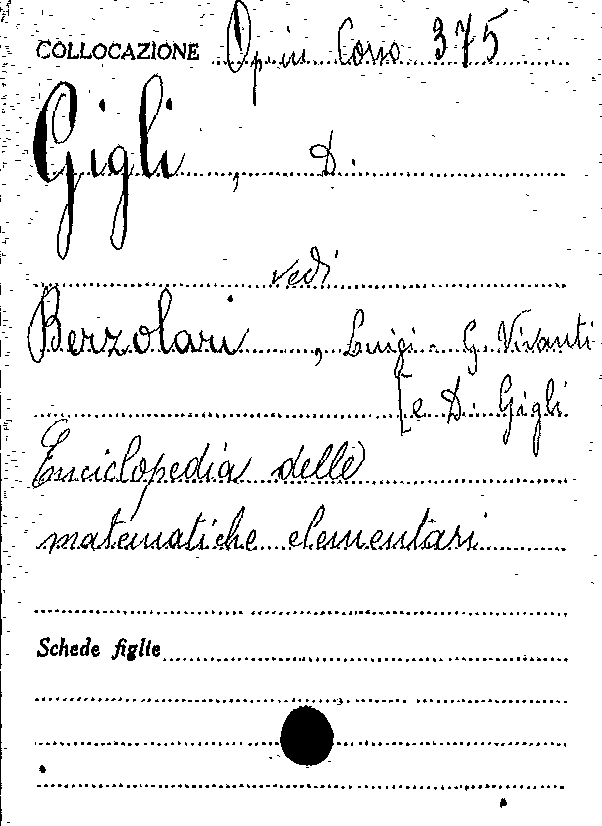 COLLOCAZIONE Op. in Corso 375
Gigli, D.
vedi
Berzolari, Luigi - G. Vivanti
[e D. Gigli
Enciclopedia delle
matematiche elementari
Schede figlie